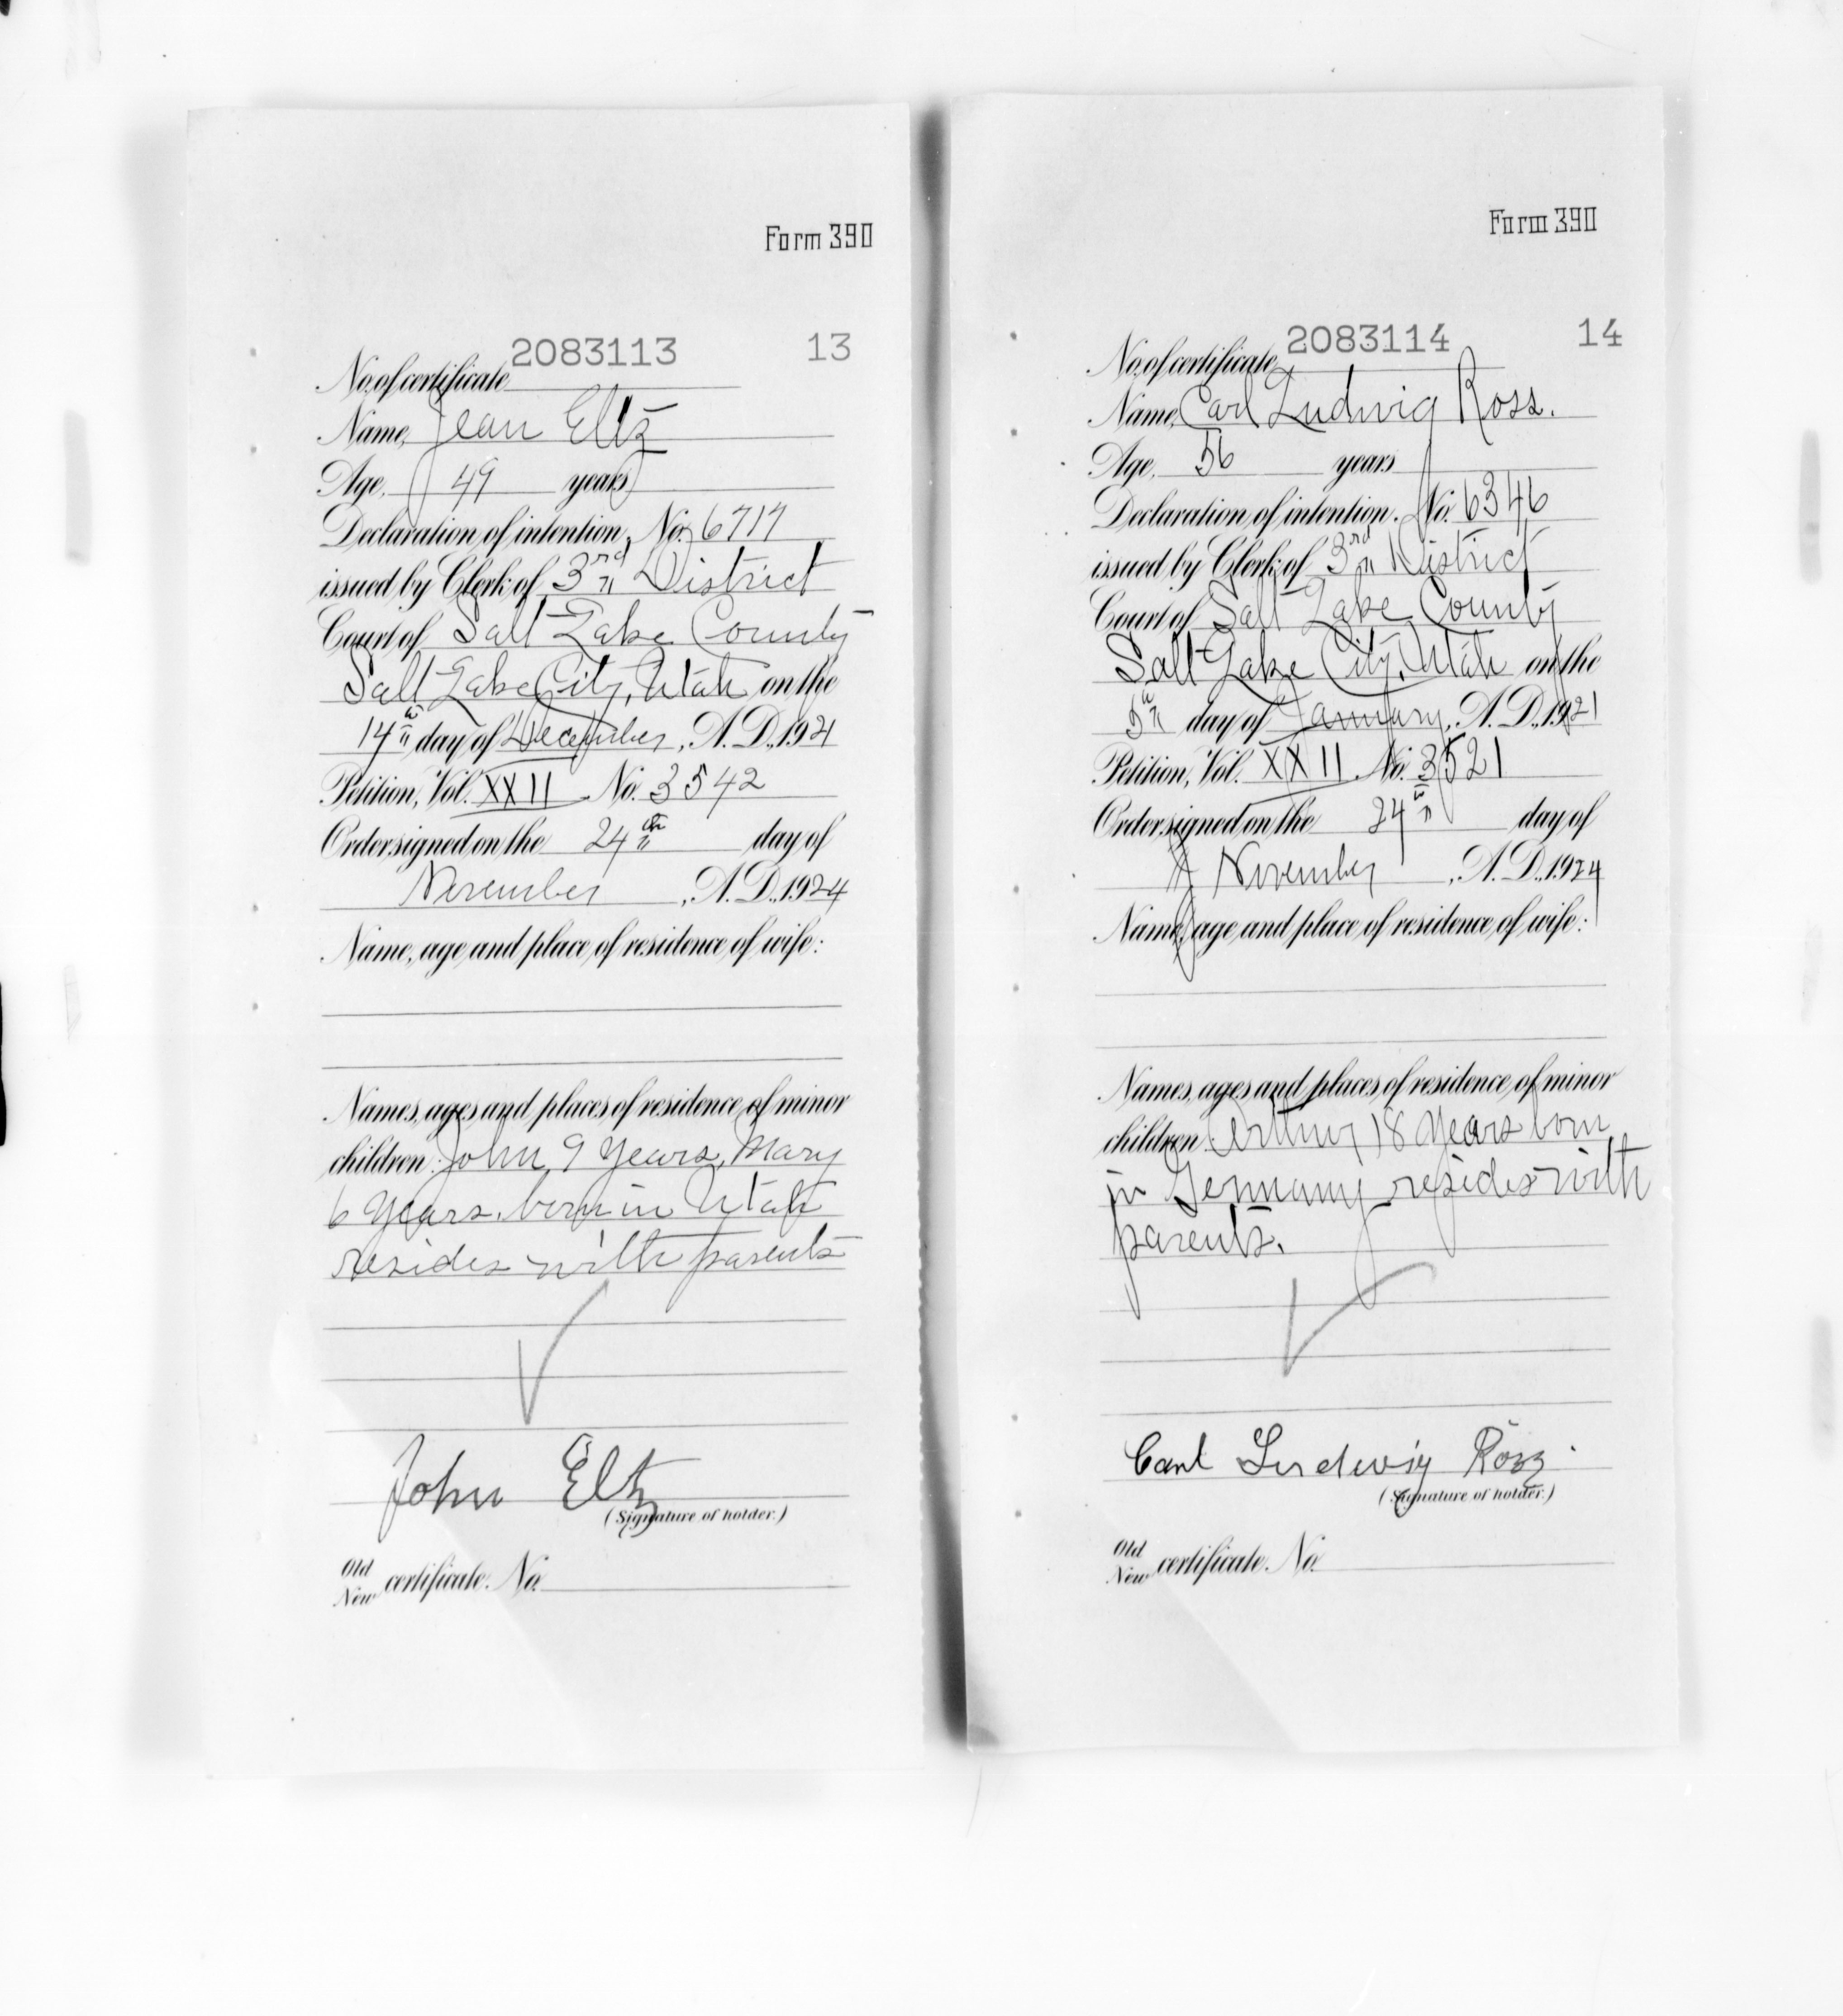 Form 390
2083113 13
No. of certificate
Name, Jean Eltz
Age, 49 years
Declaration of intention, No. 6717
issued by Clerk of 3rd District
Court of Salt Lake County
Salt Lake City, Utah on the
14th day of December, A.D., 1921
Petition, Vol. XXII No. 3542
Order signed on the 24th day of
November, A.D., 1924
Name, age and place of residence of wife:
Names, ages and places of residence of minor
children: John, 9 Years, Mary
6 Years, born in Utah
resides with parents
John Eltz
(Signature of holder.)
Old
New certificate. No.
Form 390
2083114 14
No. of certificate
Name, Carl Ludwig Ross.
Age, 56 years
Declaration of intention. No. 6346
issued by Clerk of 3rd District
Court of Salt Lake County
Salt Lake City, Utah on the
5th day of January, A.D., 1921
Petition, Vol. XXII No. 3521
Order signed on the 24th day of
November, A.D., 1924
Name, age and place of residence of wife:
Names, ages and places of residence of minor
children Arthur, 18 Years born
in Germany resides with
parents.
Carl Ludwig
(Signature of holder.)
Old
New certificate. No.